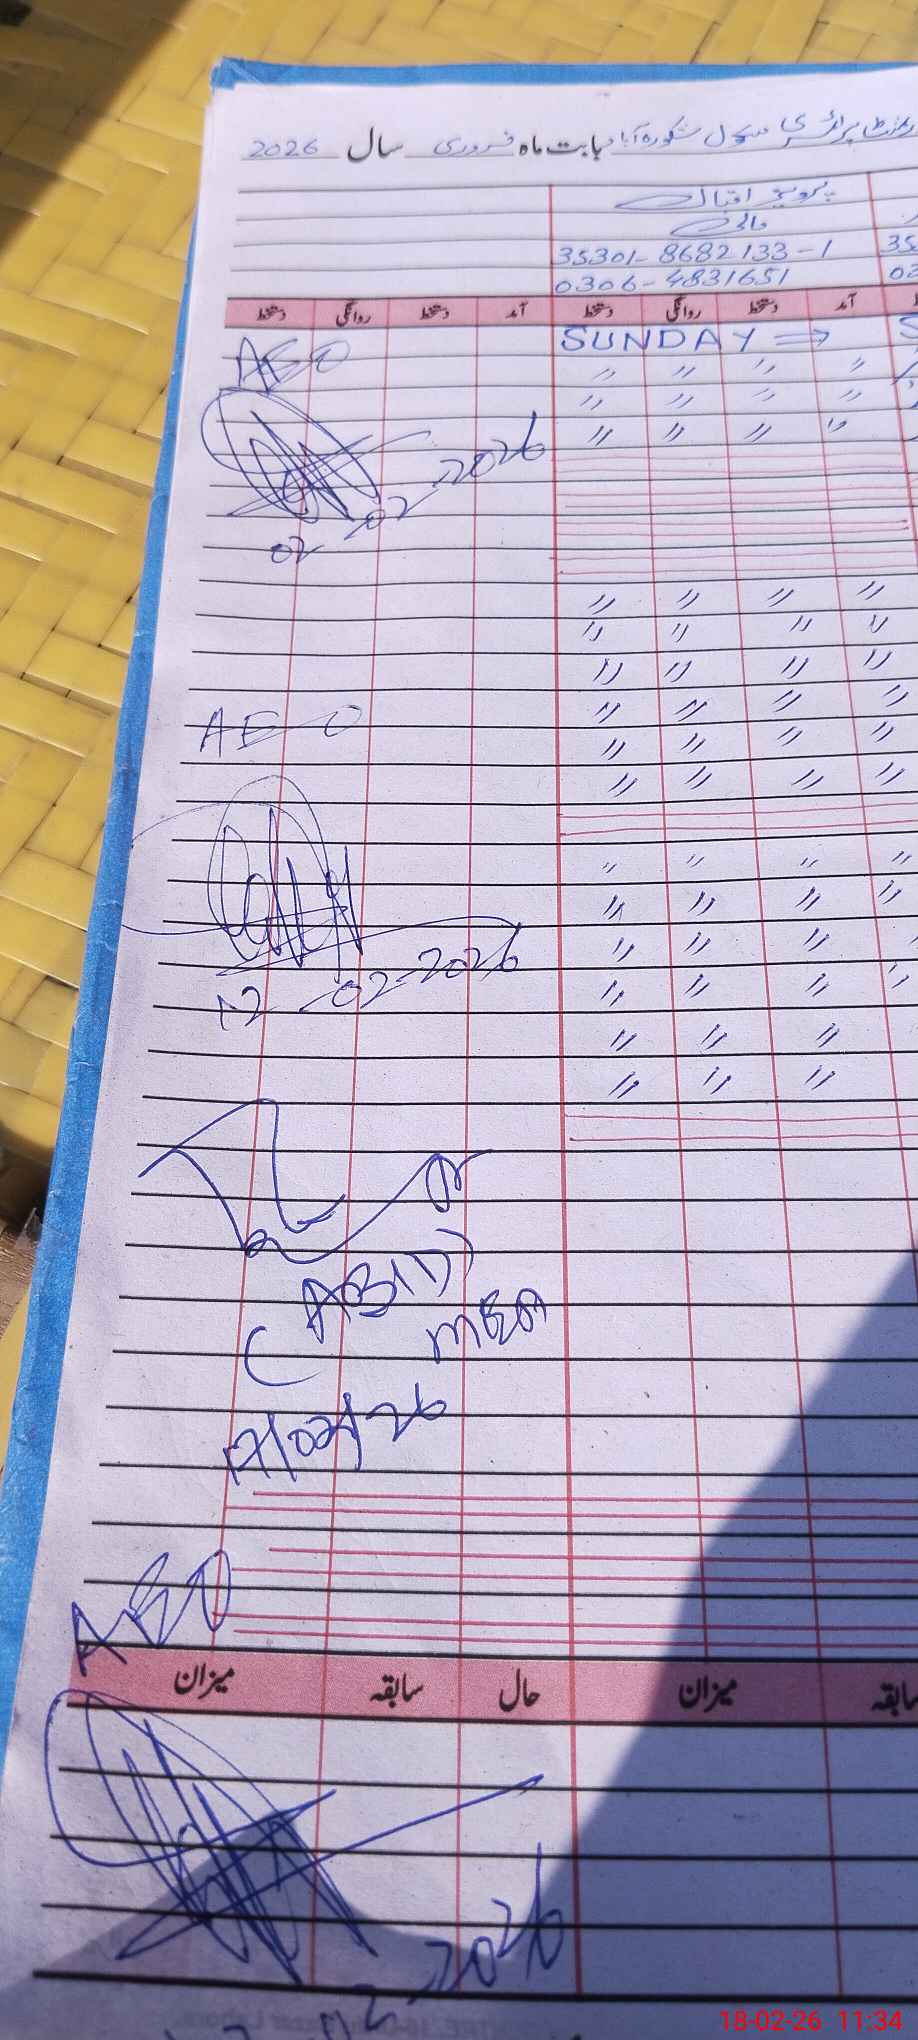 پرائمری سکول شکورہ آباد بابت ماہ فروری سال 2026
پرویز اقبال
مالی
35301-8682133-1
0306-4831651
آمد دستخط روانگی دستخط آمد دستخط روانگی دستخط
SUNDAY ⇒ S
〃 〃 〃 〃
〃 〃 〃 〃
〃 〃 〃 〃
AEO
02-02-2026
〃 〃 〃 〃
〃 〃 〃 〃
〃 〃 〃 〃
〃 〃 〃 〃
〃 〃 〃 〃
〃 〃 〃 〃
AEO
12-02-2026
〃 〃 〃 〃
〃 〃 〃 〃
〃 〃 〃
〃 〃 〃 〃
〃 〃 〃
〃 〃 〃
(ABID)
MEA
17/02/26
AEO
سابقہ میزان حال سابقہ میزان
2-2026
18-02-26 11:34